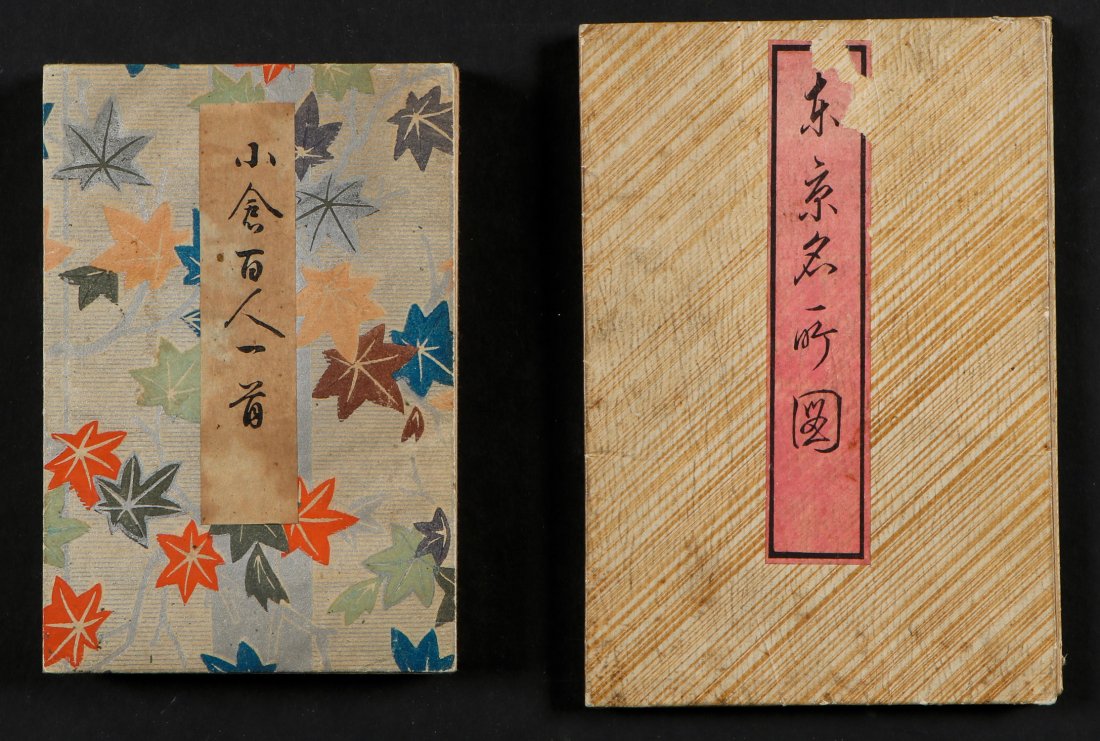 小倉百人一首
東京名所図